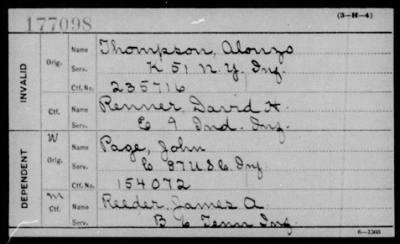 177098
(3-H-4)
INVALID
Orig. Name Thompson, Alonzo
Serv. K 51 N.Y. Inf.
Ctf. No. 235716
Ctf. Name Renner, David H.
Serv. E 9 Ind. Inf.
DEPENDENT
W
Orig. Name Page, John
Serv. C 37 U.S.C. Inf
Ctf. No. 154072
M
Ctf. Name Reeder, James A.
Serv. B 6 Tenn Inf.